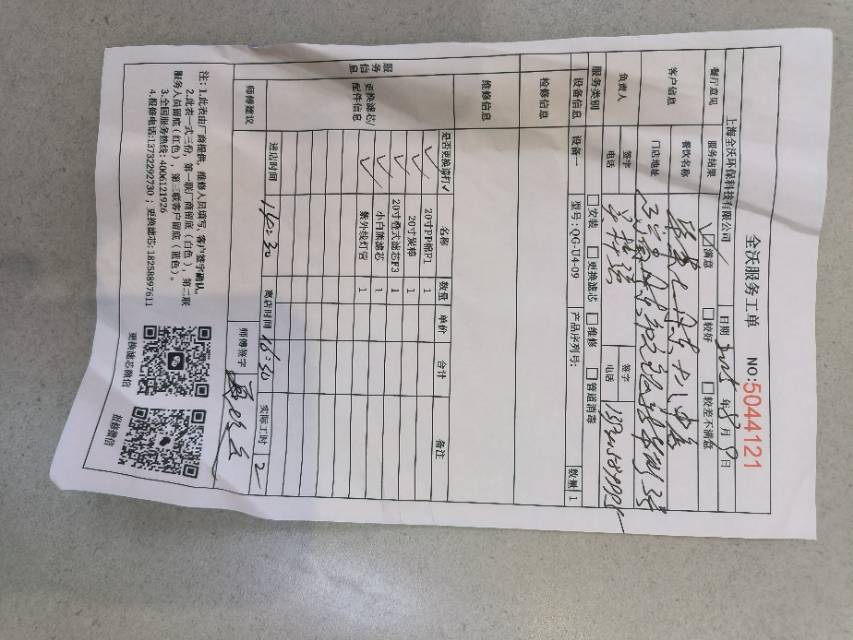 全沃服务工单 NO:5044121
上海全沃环保科技有限公司 日期 2025 年 8 月 9 日
餐厅意见 服务结果 ☑满意 □较好 □较差不满意
客户信息 餐饮名称
门店地址
负责人 签字 签字
电话 电话
服务类别 □安装 □更换滤芯 □维修 □管道消毒
设备信息 设备一 型号:QG-U4-09 产品序列号: 数量 1
检修信息
维修信息
服务信息
更换滤芯/配件信息 是否更换请打√ 名称 数量 单价 合计 备注
√ 20寸PP棉P1 1
√ 20寸炭棒 1
√ 20寸叠式滤芯F3 1
√ 小白熊滤芯 1
√ 紫外线灯管 1
师傅建议
进店时间 14:30 离店时间 16:30 实际工时 2
师傅签字
注:1.此表由厂商提供,维修人员填写,客户签字确认。
2.此表一式三份,第一联厂商留底(白色),第二联
服务人员留底(红色),第三联客户留底(蓝色)。
3.全国服务热线:4006121926
4.报修电话:13732292730;更换滤芯:18258897611
更换滤芯微信 报修微信